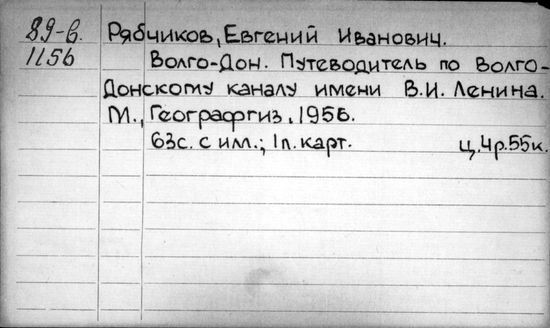 89-в.
1156
Рябчиков, Евгений Иванович.
Волго-Дон. Путеводитель по Волго-
Донскому каналу имени В.И. Ленина.
М., Географгиз, 1956.
63с. с илл.; 1л. карт. ц. 4р. 55к.